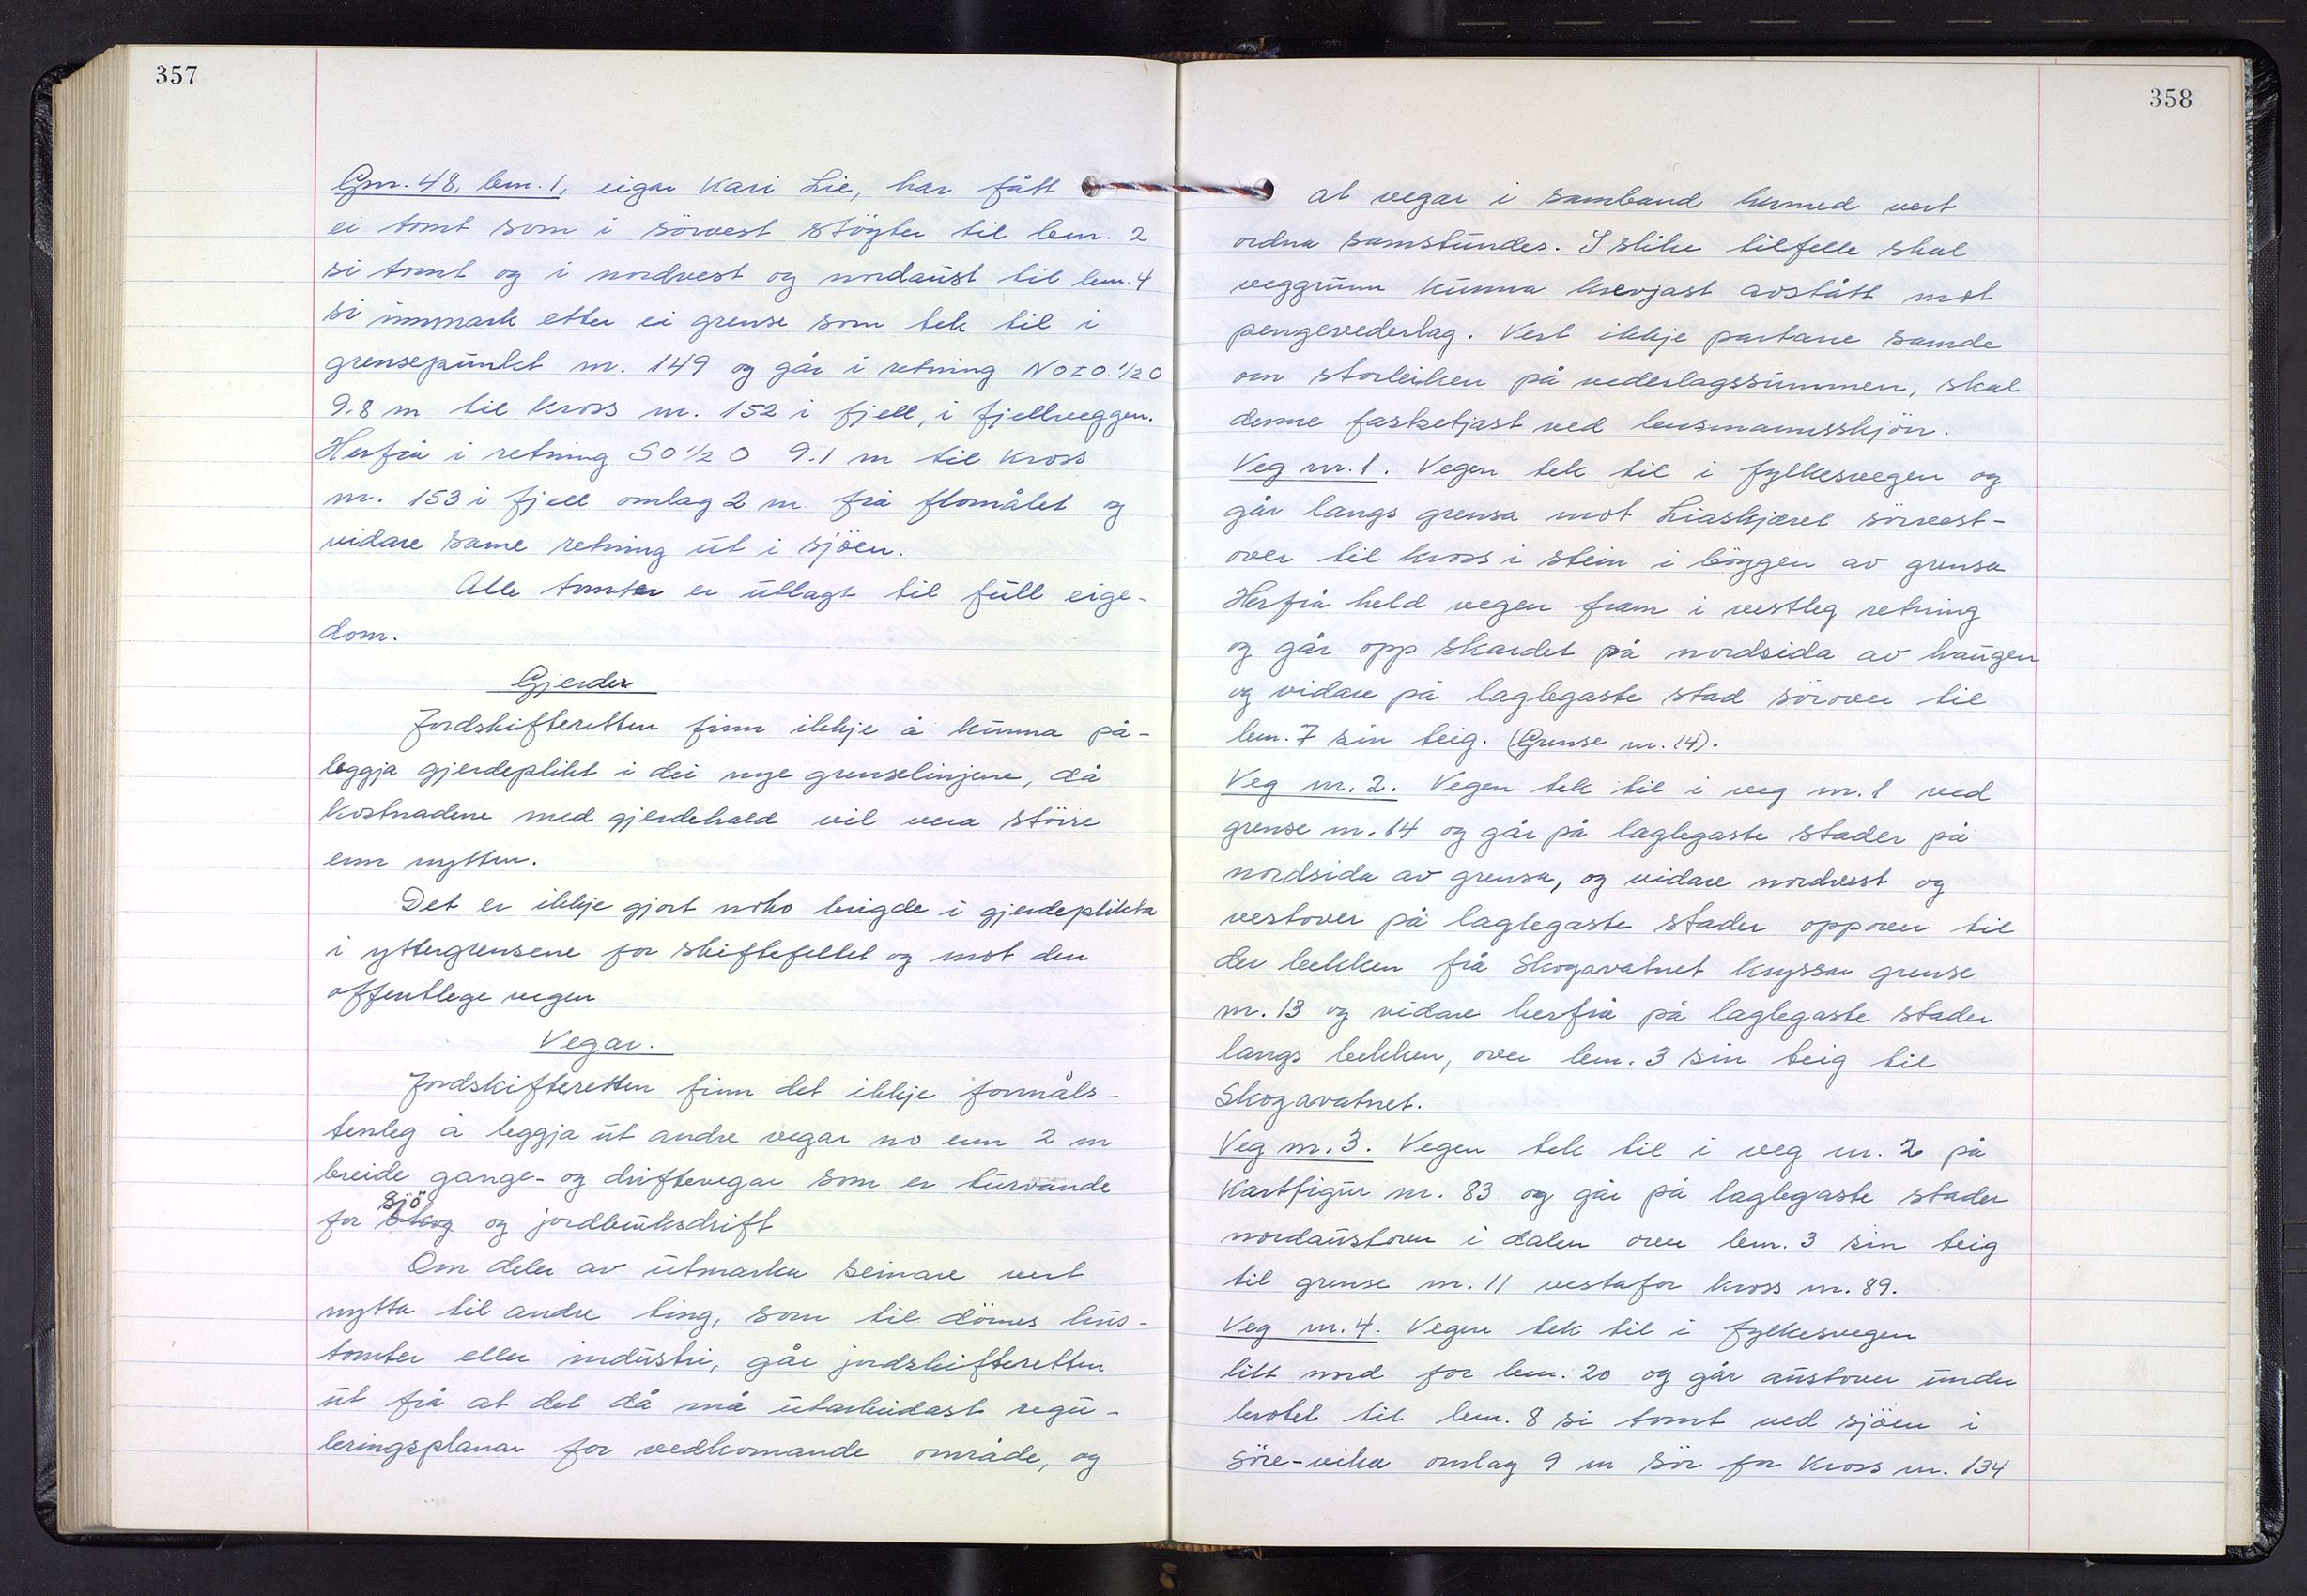 357
Gnr. 48, bnr. 1, eigar Kari Lie, har fått
ei tomt som i sörvest stöyter til bnr. 2
si tomt og i nordvest og nordaust til bnr. 4
si innmark etter ei grense som tek til i
grensepunkt nr. 149 og går i retning NOtO 1/2 O
9.8 m til kross nr. 152 i fjell, i fjellveggen.
Herfrå i retning SO 1/2 O 9.1 m til kross
nr. 153 i fjell omlag 2 m frå flomålet og
vidare same retning ut i sjöen.
Alle tomter er utlagt til full eige-
dom.
Gjerder
Jordskifteretten finn ikkje å kunna på-
leggja gjerdeplikt i dei nye grenselinjene, då
kostnadene med gjerdehald vil vera större
enn nytten.
Det er ikkje gjort noko brigde i gjerdeplikta
i yttergrensene for skiftefeltet og mot den
offentlege vegen
Vegar.
Jordskifteretten finn det ikkje formåls-
tenleg å leggja ut andre vegar no enn 2 m
breide gange- og driftevegar som er turvande
sjö
for skog og jordbruksdrift
Om deler av utmarka seinare vert
nytta til andre ting, som til dömes hus-
tomter eller industri, går jordskifteretten
ut frå at det då må utarbeidast regu-
leringsplanar for vedkomande område, og
358
at vegar i samband hermed vert
ordna samstundes. I slike tilfelle skal
veggrunn kunna krevjast avstått mot
pengevederlag. Vert ikkje partane samde
om storleiken på vederlagssummen, skal
denne fastsetjast ved lensmannsskjön.
Veg nr. 1. Vegen tek til i fylkesvegen og
går langs grensa mot Liaskjæret sörvest-
over til kross i stein i böygen av grensa
Herfrå held vegen fram i vestleg retning
og går opp skardet på nordsida av haugen
og vidare på laglegaste stad sörover til
bnr. 7 sin teig. (Grense nr. 14).
Veg nr. 2. Vegen tek til i veg nr. 1 ved
grense nr. 14 og går på laglegaste stader på
nordsida av grensa, og vidare nordvest og
vestover på laglegaste stader oppover til
der bekken frå Skogavatnet kryssar grense
nr. 13 og vidare herfrå på laglegaste stader
langs bekken, over bnr. 3 sin teig til
Skogavatnet.
Veg nr. 3. Vegen tek til i veg nr. 2 på
kartfigur nr. 83 og går på laglegaste stader
nordaustover i dalen over bnr. 3 sin teig
til grense nr. 11 vestafor kross nr. 89.
Veg nr. 4. Vegen tek til i fylkesvegen
litt nord for bnr. 20 og går austover under
brotet til bnr. 8 si tomt ved sjöen i
Söre-vika omlag 9 m sör for kross nr. 134